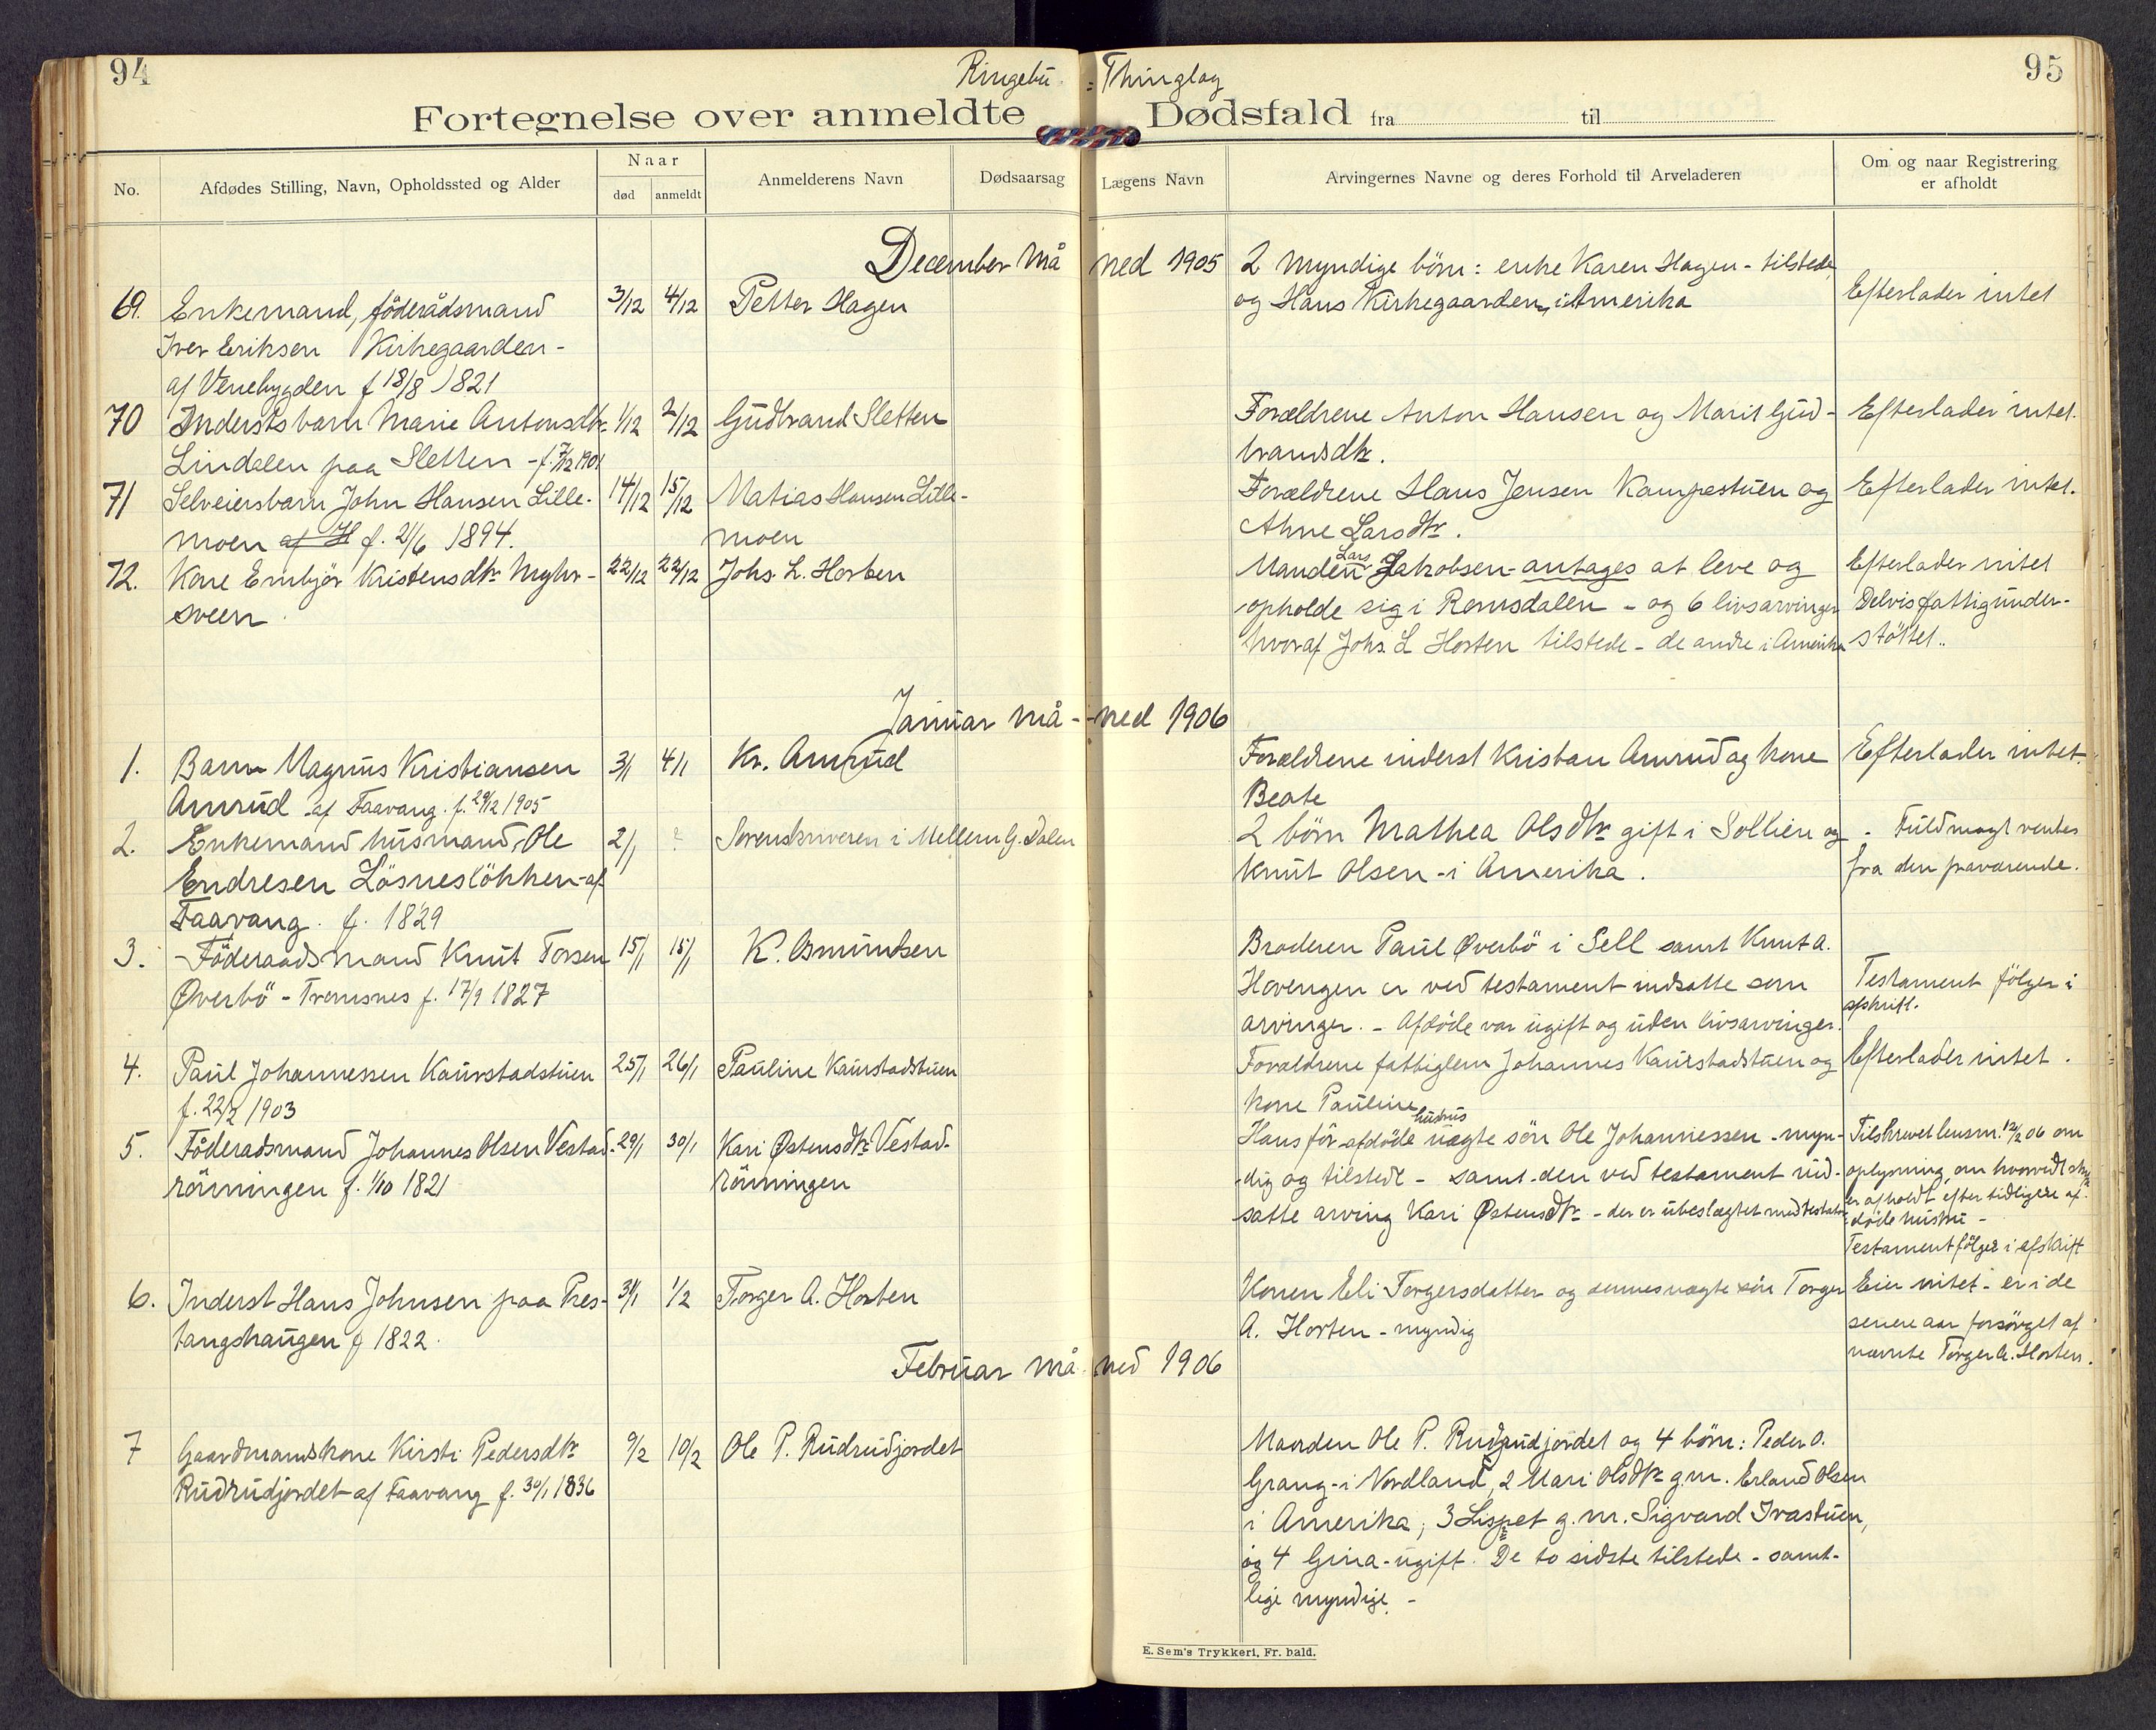 94
Ringebu - Thinglag
95
Fortegnelse over anmeldte Dødsfald fra til
No.
Afdødes Stilling, Navn, Opholdssted og Alder
Naar
død
anmeldt
Anmelderens Navn
Dødsaarsag
Lægens Navn
Arvingernes Navne og deres Forhold til Arveladeren
Om og naar Registrering
er afholdt
December måned 1905
69. Enkemand, föderådsmand
Iver Eriksen Kirkegaarden-
af Venebygden f 18/8 1821
3/12 4/12 Petter Hagen
2 myndige börn: enke Karen Hagen - tilstede
og Hans Kirkegaarden, i Amerika
Efterlader intet
70 Inderstsbarn Marie Antonsdtr.
Lindalen paa Sletten - f. 7/12 1901
1/12 2/12 Gudbrand Sletten
Forældrene Anton Hansen og Marit Gud-
bransdtr.
Efterlader intet.
71 Selveiersbarn John Hansen Lille-
moen af H f. 21/6 1894.
14/12 15/12 Matias Hansen Lille-
moen
Forældrene Hans Jensen Kampestuen og
Ahne Larsdtr.
Efterlader intet.
72. Kone Embjör Kristensdtr Myhr-
sveen
22/12 22/12 Johs. L. Horten
Manden Lars Jakobsen - antages at leve og
opholde sig i Romsdalen - og 6 livsarvinger
hvoraf Johs. L Horten tilstede - de andre i Amerika
Efterlader intet
Delvis fattigunder-
støttet..
Januar må- -ned 1906
1. Barn Magnus Kristiansen
Amrud af Faavang. f. 29/12 1905
3/1 4/1 Kr. Amrud
Forældrene inderst Kristian Amrud og kone
Beate
Efterlader intet.
2. Enkemand husmand Ole
Endresen Lösneslökken - af
Faavang. f. 1829
2/1 ? Sorenskriveren i Mellem G. Dalen
2 börn Mathea Olsdtr gift i Sollien og
Knut Olsen - i Amerika.
- Fuldmagt ventes
fra den fraværende.
3. Föderaadsmand Knut Torsen
Øverbö - Tromsnes f. 17/9 1827
15/1 15/1 K. Asmundsen
Broderen Paul Øverbö i Sell samt Knut A.
Hovengen er ved testament indsatte som
arvinger. - Afdöde var ugift og uden livsarvinger.
Testament fölger i
afskrift.
4. Paul Johannessen Kaurstadstuen
f. 22/2 1903
25/1 26/1 Pauline Kaurstadstuen
Forældrene fattiglem Johannes Kaurstadstuen og
kone Pauline
Efterlader intet.
5. Föderaadsmand Johannes Olsen Vestad-
rönningen f. 1/10 1821
29/1 30/1 Kari Østensdtr Vestad-
rönningen
Hans för afdöde hustrus uægte sön Ole Johannessen - myn-
dig og tilstede - samt den ved testament ind-
satte arving Kari Østensdtr - der er ubeslægtet med testator
Tilskrevet lensm. 12/2 06 om
oplysning om hvorvidt skifte
er afholdt efter tidligere af-
döde hustru -
Testament fölger i afskrift
6. Inderst Hans Johnsen paa Pres-
tangshaugen f 1822.
31/1 1/2 Torger A. Horten
Konen Eli Torgersdatter og dennes uægte sön Torger
A. Horten - myndig
Eier intet - er i de
senere aar forsörget af
nævnte Torger A. Horten.
Februar måned 1906
7 Gaardmandskone Kirsti Pedersdtr
Rudrudjordet af Faavang f. 30/1 1836
9/2 10/2 Ole P. Rudrudjordet
Manden Ole P. Rudrudjordet og 4 börn: Peder O.
Grang - i Nordland, 2 Mari Olsdtr g.m. Erland Olsen
i Amerika; 3 Lispet g.m. Sigvard Ivastuen,
og 4 Gina - ugift. De to sidste tilstede - samt-
lige myndige. -
E. Sem's Trykkeri, Fr. hald.